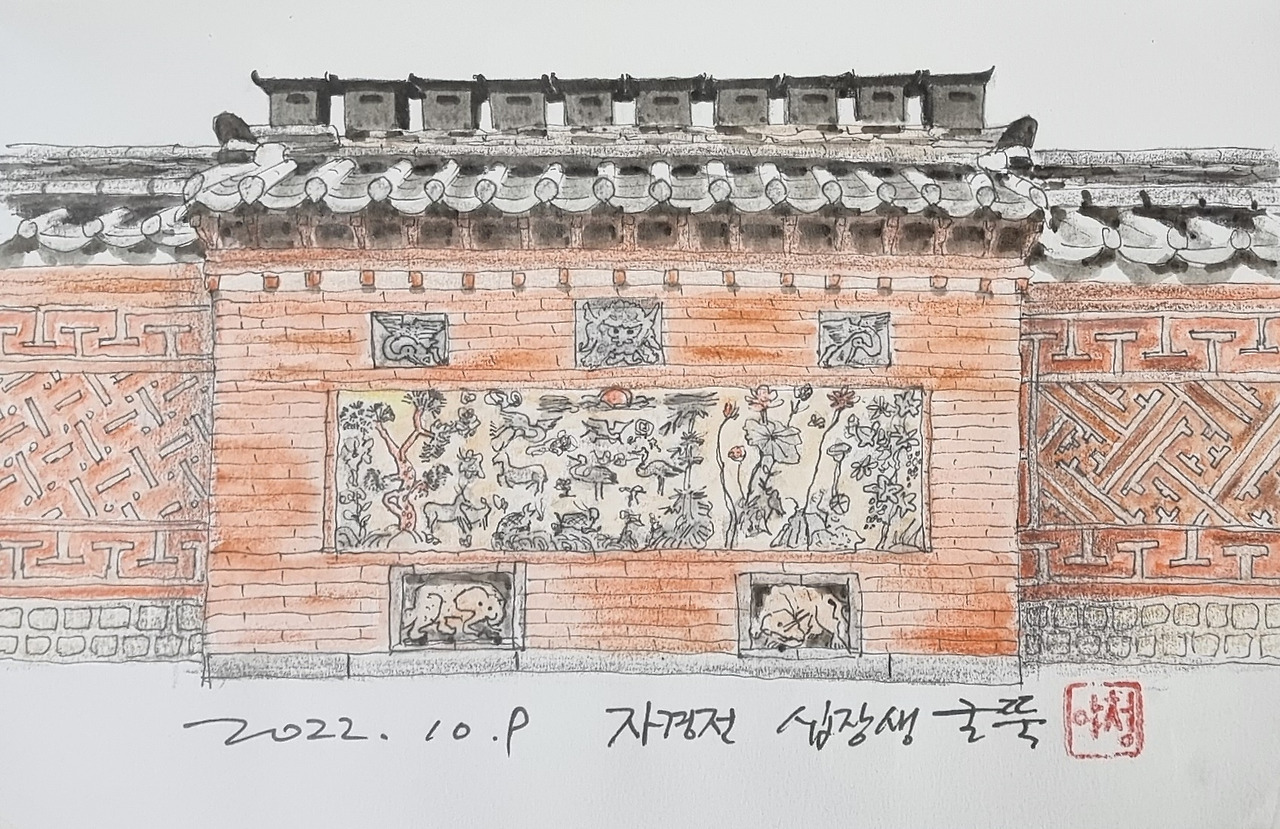 2022. 10. 9 자경전 십장생 굴뚝 아청